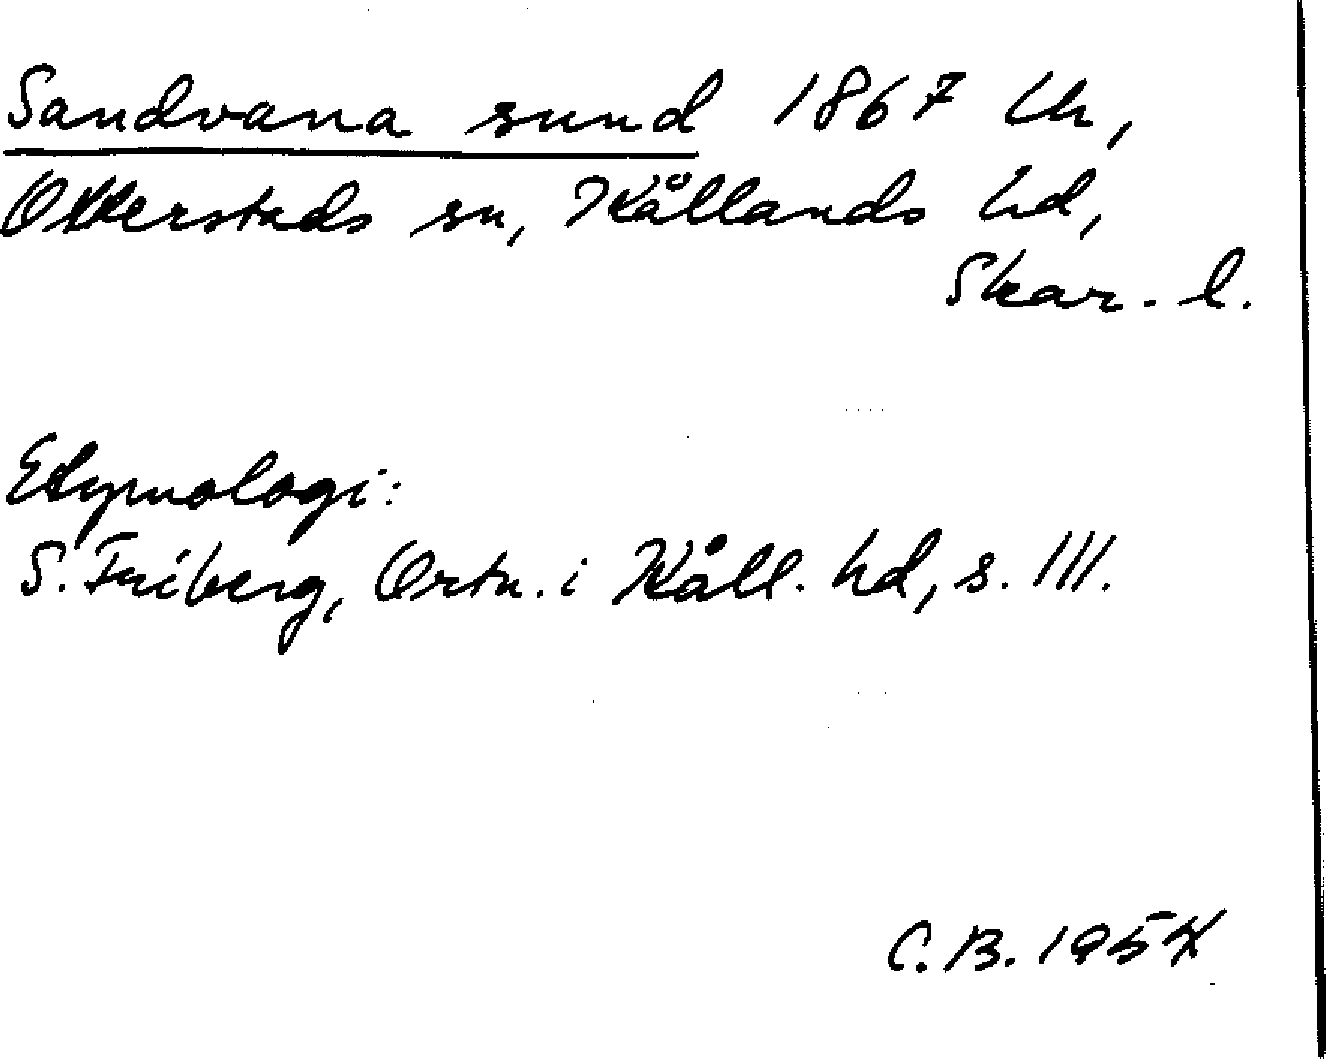 Sandvana sund 1867 Lk,
Otterstads sn, Kållands hd,
Skar. l.
Etymologi:
S. Friberg, Ortn. i Kåll. hd, s. 111.
C.B. 1954